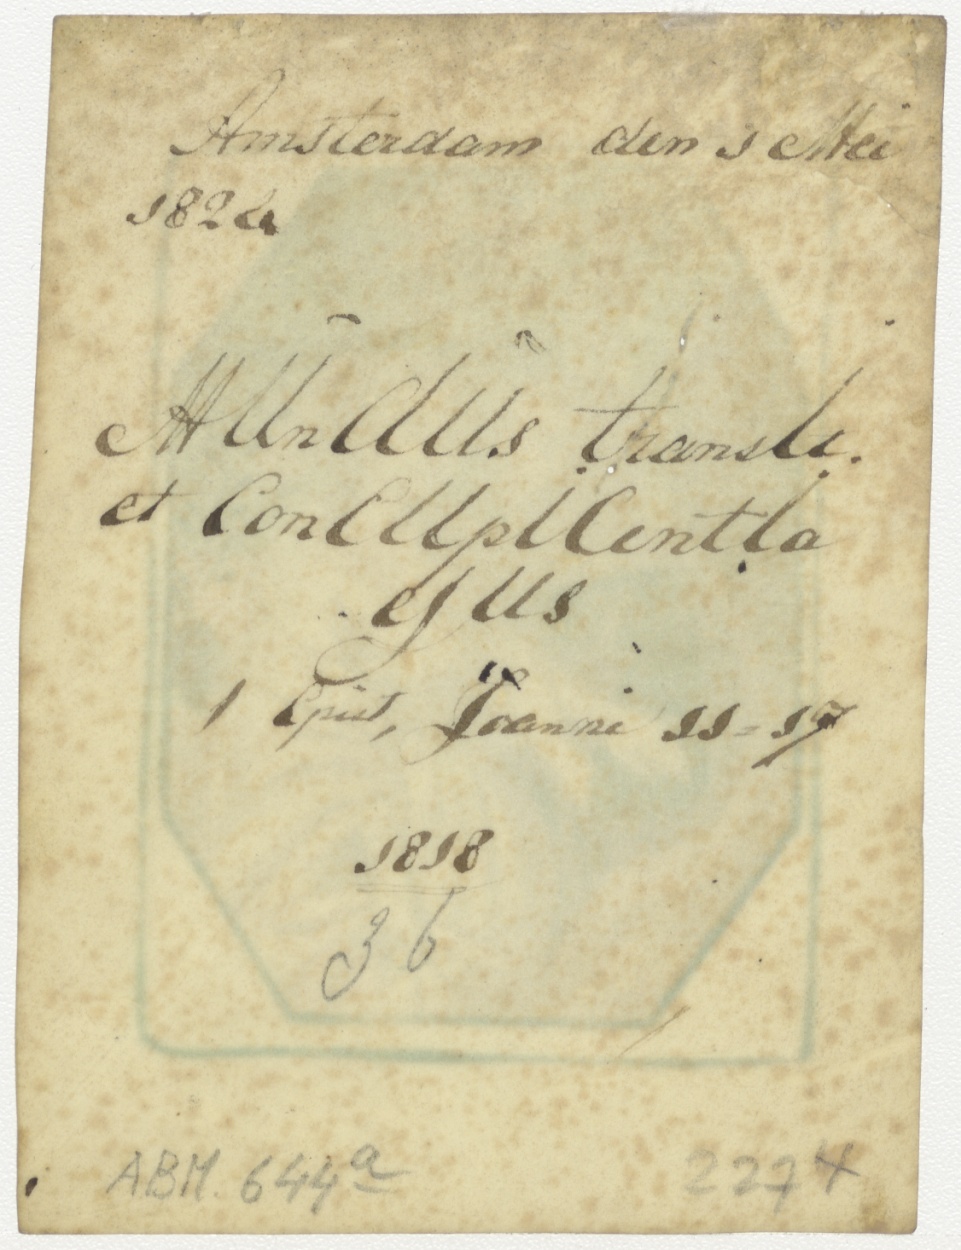 Amsterdam den 1 Mei
1824
MUnDUs transIt.
et ConCUpICentIa
eJUs
1 Epist, Joanni 11=17
1818
36
ABM 644a 2274